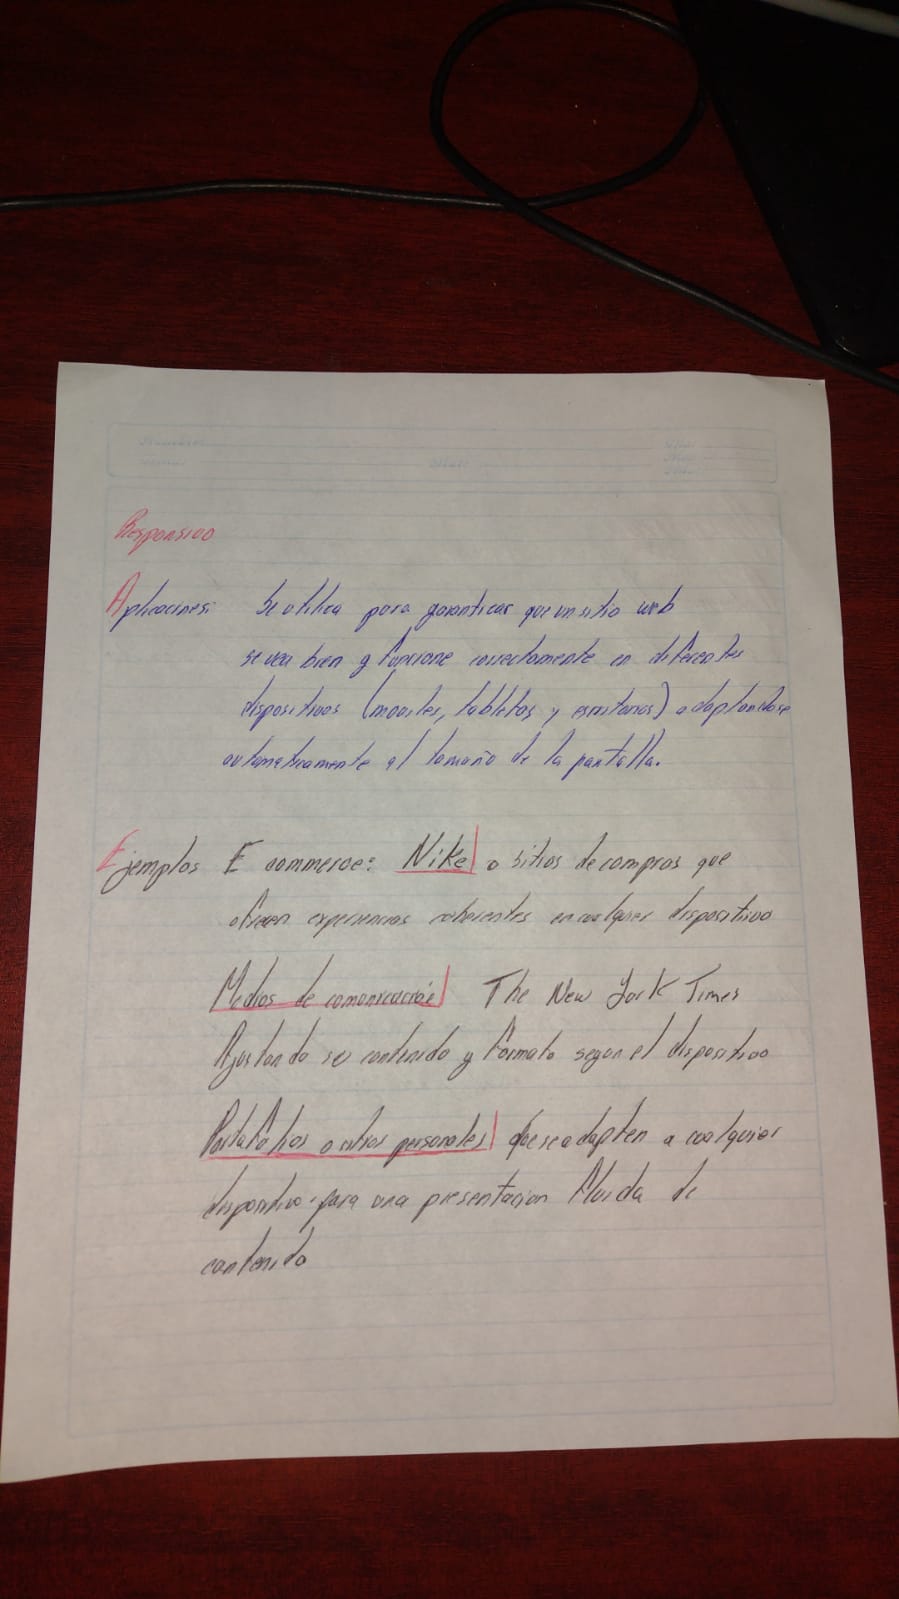 Responsivo
Aplicaciones: Se utiliza para garanticar que un sitio web
se vea bien y funcione correctamente en diferentes
dispositivos (moviles, tabletas y escritorios) adaptandose
automaticamente al tamaño de la pantalla.
Ejemplos E commerce: Nike o sitios de compras que
ofrecen experiencias coherentes en cualquier dispositivo
Medios de comunicación The New York Times
Ajustando su contenido y formato segun el dispositivo
Portafolios o sitios personales Que se adapten a cualquier
dispositivo para una presentacion fluida de
contenido